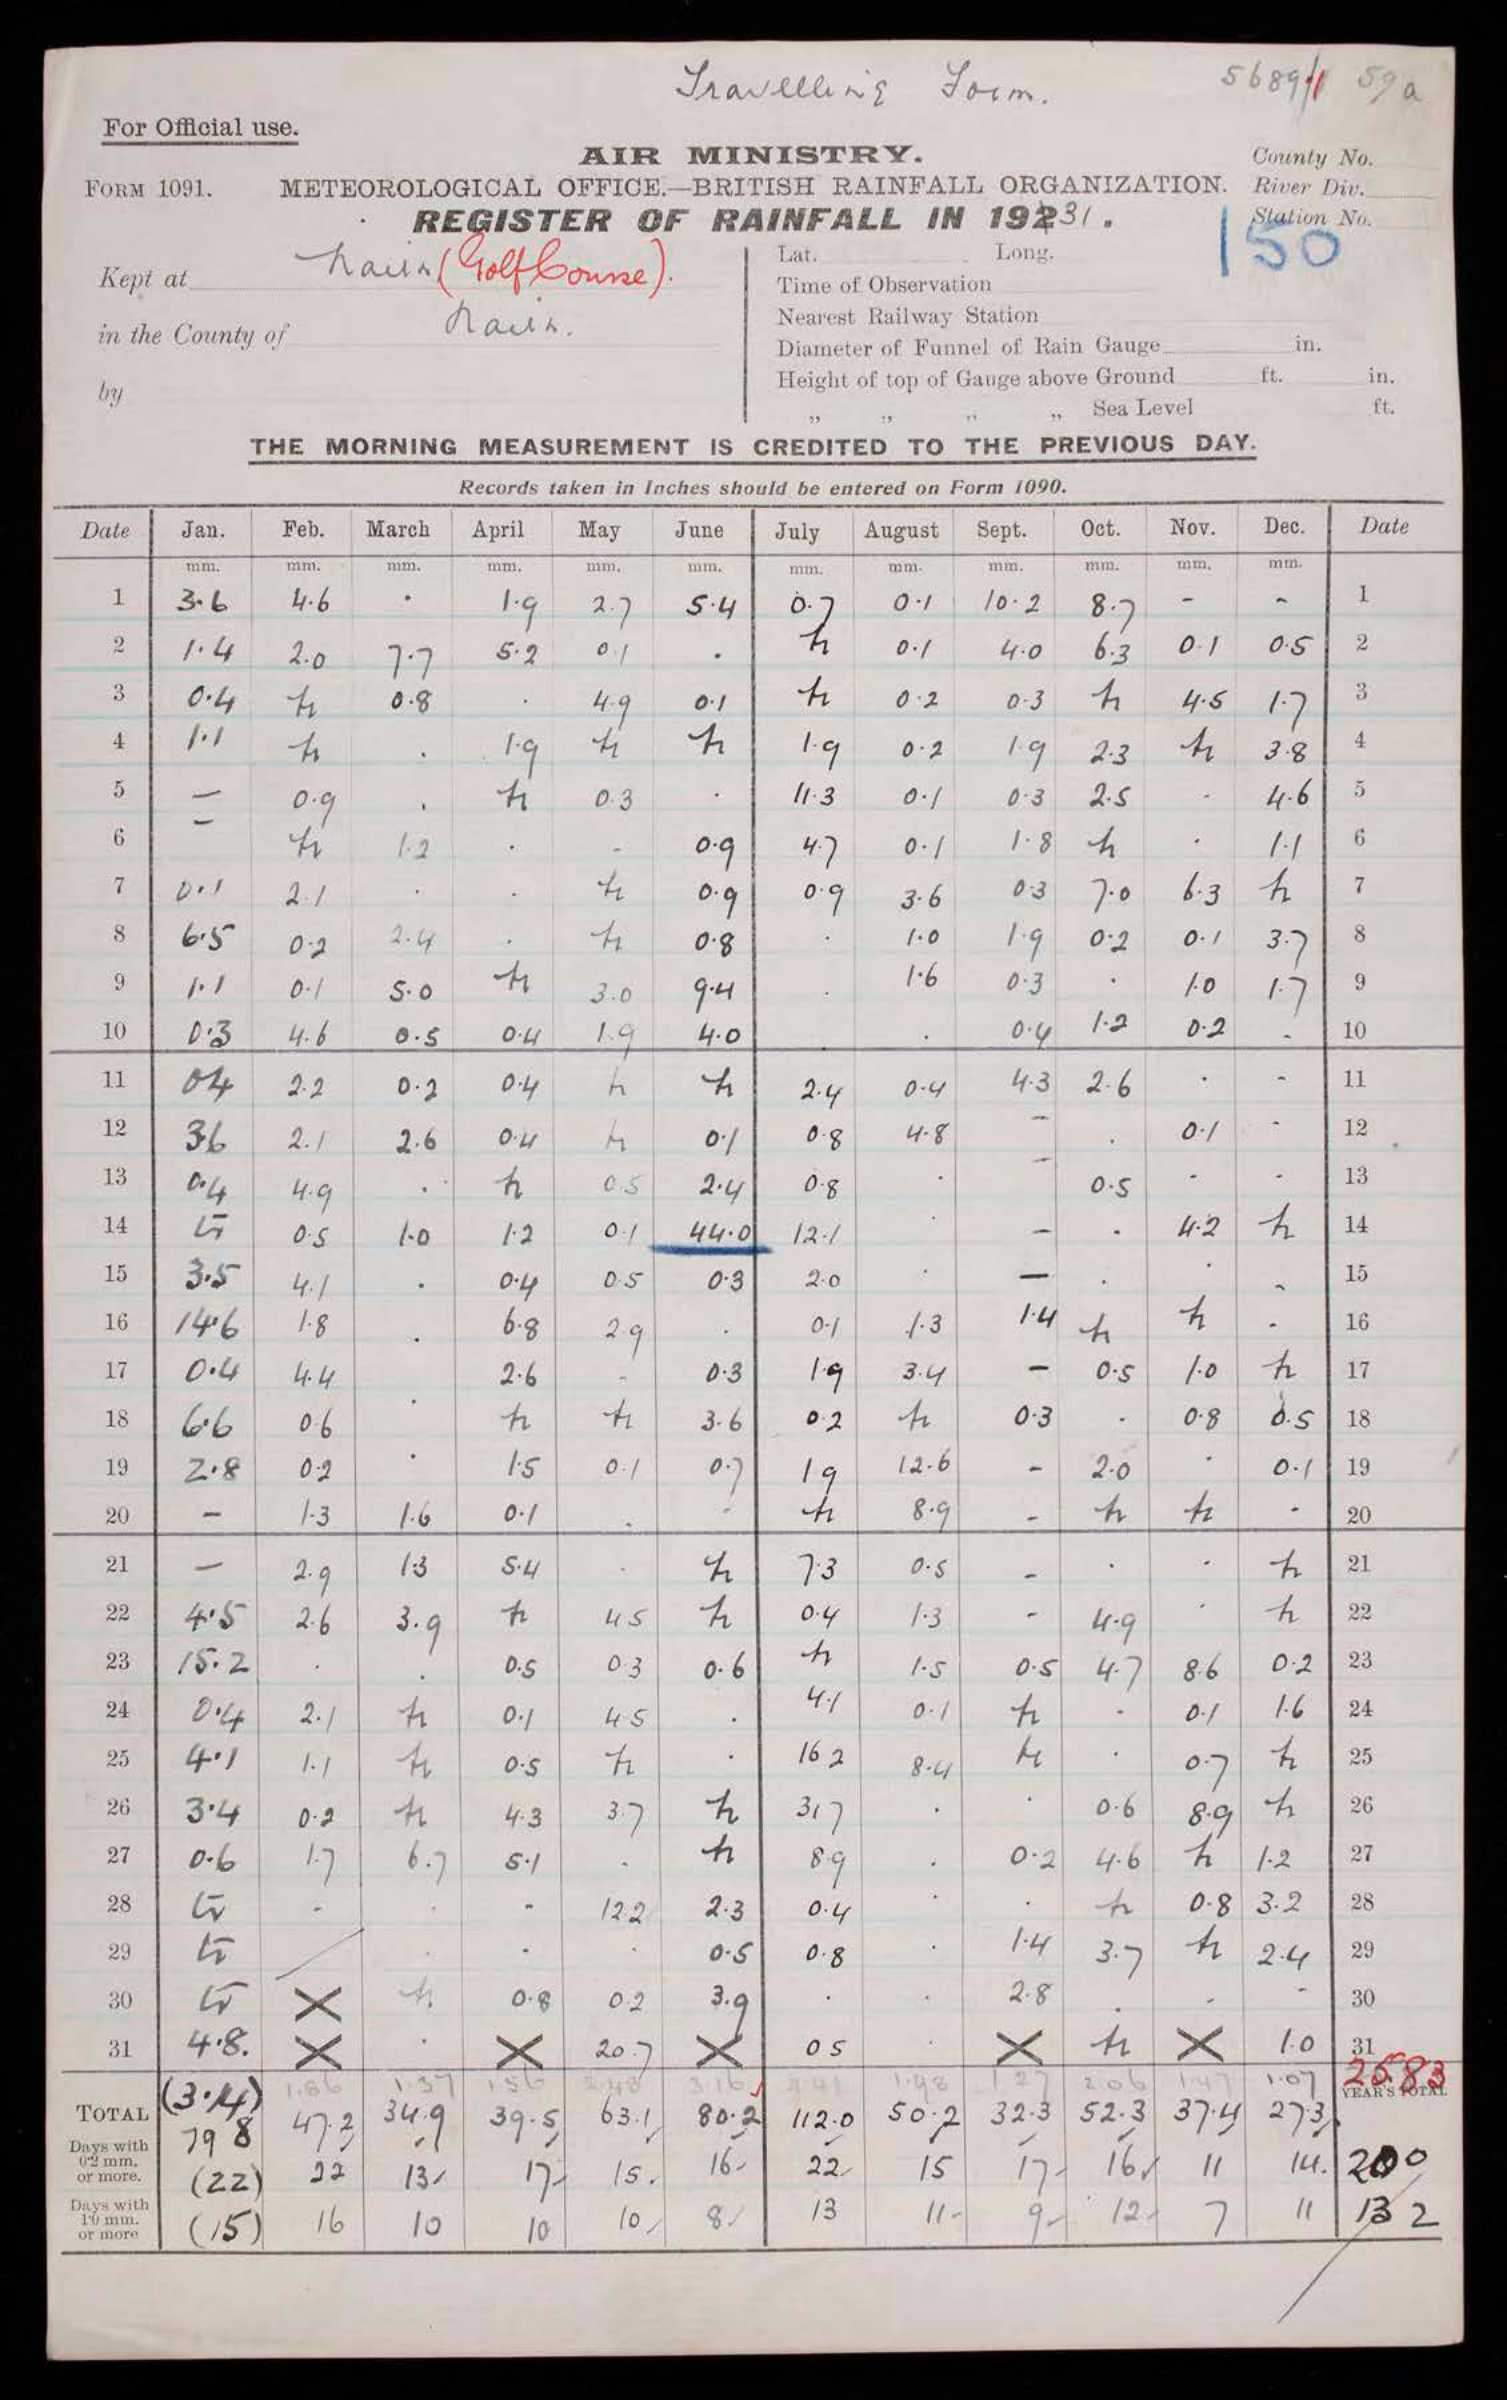 Travelling Form. 5689/1 59a
For Official use.
AIR MINISTRY.
County No.
FORM 1091. METEOROLOGICAL OFFICE.—BRITISH RAINFALL ORGANIZATION. River Div.
REGISTER OF RAINFALL IN 19231. Station No.
150
Kept at Nairn (Golf Course).
in the County of Nairn.
by
Lat. Long.
Time of Observation
Nearest Railway Station
Diameter of Funnel of Rain Gauge in.
Height of top of Gauge above Ground ft. in.
„ „ „ „ Sea Level ft.
THE MORNING MEASUREMENT IS CREDITED TO THE PREVIOUS DAY.
Records taken in Inches should be entered on Form 1090.
Date Jan. Feb. March April May June July August Sept. Oct. Nov. Dec. Date
mm. mm. mm. mm. mm. mm. mm. mm. mm. mm. mm. mm.
1 3.6 4.6 . 1.9 2.7 5.4 0.7 0.1 10.2 8.7 - - 1
2 1.4 2.0 7.7 5.2 0.1 . tr 0.1 4.0 6.3 0.1 0.5 2
3 0.4 tr 0.8 . 4.9 0.1 tr 0.2 0.3 tr 4.5 1.7 3
4 1.1 tr . 1.9 tr tr 1.9 0.2 1.9 2.3 tr 3.8 4
5 - 0.9 . tr 0.3 . 11.3 0.1 0.3 2.5 - 4.6 5
6 - tr 1.2 . - 0.9 4.7 0.1 1.8 tr . 1.1 6
7 0.1 2.1 . . tr 0.9 0.9 3.6 0.3 7.0 6.3 tr 7
8 6.5 0.2 2.4 . tr 0.8 . 1.0 1.9 0.2 0.1 3.7 8
9 1.1 0.1 5.0 tr 3.0 9.4 . 1.6 0.3 . 1.0 1.7 9
10 0.3 4.6 0.5 0.4 1.9 4.0 . . 0.4 1.2 0.2 - 10
11 04 2.2 0.2 0.4 tr tr 2.4 0.4 4.3 2.6 . - 11
12 36 2.1 2.6 0.4 tr 0.1 0.8 4.8 - . 0.1 - 12
13 0.4 4.9 . tr 0.5 2.4 0.8 . - 0.5 - - 13
14 tr 0.5 1.0 1.2 0.1 44.0 12.1 . - . 4.2 tr 14
15 3.5 4.1 . 0.4 0.5 0.3 2.0 . - . . - 15
16 14.6 1.8 . 6.8 2.9 . 0.1 1.3 1.4 tr tr - 16
17 0.4 4.4 2.6 - 0.3 1.9 3.4 - 0.5 1.0 tr 17
18 6.6 0.6 . tr tr 3.6 0.2 tr 0.3 . 0.8 0.5 18
19 2.8 0.2 . 1.5 0.1 0.7 1 9 12.6 - 2.0 . 0.1 19
20 - 1.3 1.6 0.1 . - tr 8.9 - tr tr - 20
21 - 2.9 1.3 5.4 . tr 7.3 0.5 - . . tr 21
22 4.5 2.6 3.9 tr 4 5 tr 0.4 1.3 - 4.9 . tr 22
23 15.2 . . 0.5 0.3 0.6 tr 1.5 0.5 4.7 8.6 0.2 23
24 0.4 2.1 tr 0.1 4 5 . 4.1 0.1 tr - 0.1 1.6 24
25 4.1 1.1 tr 0.5 tr . 16 2 8.4 tr . 0.7 tr 25
26 3.4 0.2 tr 4.3 3.7 tr 31 7 . . 0.6 8.9 tr 26
27 0.6 1.7 6.7 5.1 . tr 8.9 . 0.2 4.6 tr 1.2 27
28 tr - . - 12.2 2.3 0.4 . . tr 0.8 3.2 28
29 tr . . . 0.5 0.8 . 1.4 3.7 tr 2.4 29
30 tr X tr 0.8 0.2 3.9 . . 2.8 . - - 30
31 4.8. X . X 20.7 X 0 5 . X tr X 1.0 31
(3.14) 1.86 1.37 1.56 2.48 3.16 4.41 1.98 1.27 2.06 1.47 1.07 25.83
YEAR'S TOTAL
TOTAL 79 8 47.2 34.9 39.5 63.1 80.2 112.0 50.2 32.3 52.3 37.4 27.3
Days with 0.2 mm. or more. (22) 22 13 17 15. 16 22 15 17 16 11 14. 200
Days with 1.0 mm. or more (15) 16 10 10 10 8 13 11 9 12 7 11 132